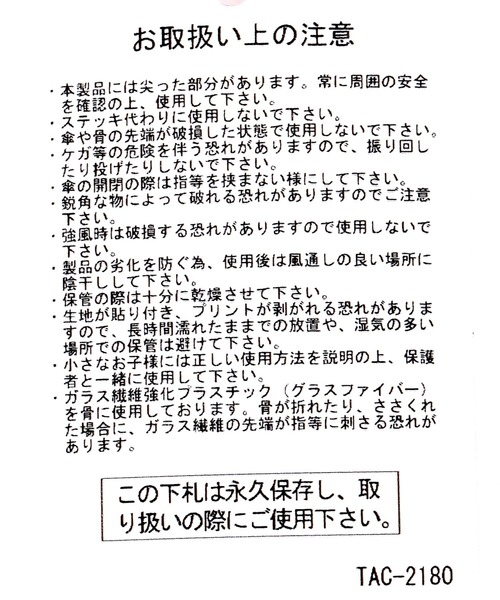 お取扱い上の注意
・本製品には尖った部分があります。常に周囲の安全
を確認の上、使用して下さい。
・ステッキ代わりに使用しないで下さい。
・傘や骨の先端が破損した状態で使用しないで下さい。
・ケガ等の危険を伴う恐れがありますので、振り回し
たり投げたりしないで下さい。
・傘の開閉の際は指等を挟まない様にして下さい。
・鋭角な物によって破れる恐れがありますのでご注意
下さい。
・強風時は破損する恐れがありますので使用しないで
下さい。
・製品の劣化を防ぐ為、使用後は風通しの良い場所に
陰干しして下さい。
・保管の際は十分に乾燥させて下さい。
・生地が貼り付き、プリントが剥がれる恐れがありま
すので、長時間濡れたままでの放置や、湿気の多い
場所での保管は避けて下さい。
・小さなお子様には正しい使用方法を説明の上、保護
者と一緒に使用して下さい。
・ガラス繊維強化プラスチック（グラスファイバー）
を骨に使用しております。骨が折れたり、ささくれ
た場合に、ガラス繊維の先端が指等に刺さる恐れが
あります。
この下札は永久保存し、取
り扱いの際にご使用下さい。
TAC-2180